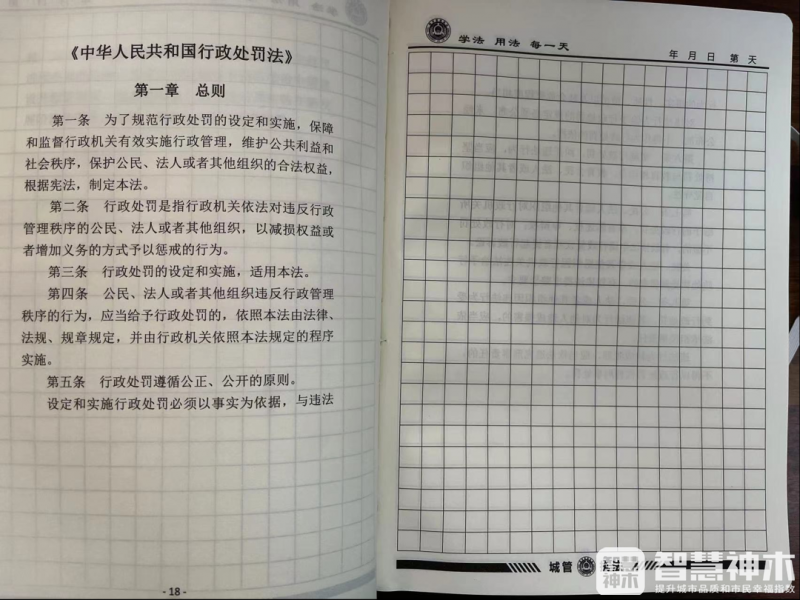 《中华人民共和国行政处罚法》
第一章 总则
第一条 为了规范行政处罚的设定和实施，保障
和监督行政机关有效实施行政管理，维护公共利益和
社会秩序，保护公民、法人或者其他组织的合法权益，
根据宪法，制定本法。
第二条 行政处罚是指行政机关依法对违反行政
管理秩序的公民、法人或者其他组织，以减损权益或
者增加义务的方式予以惩戒的行为。
第三条 行政处罚的设定和实施，适用本法。
第四条 公民、法人或者其他组织违反行政管理
秩序的行为，应当给予行政处罚的，依照本法由法律、
法规、规章规定，并由行政机关依照本法规定的程序
实施。
第五条 行政处罚遵循公正、公开的原则。
设定和实施行政处罚必须以事实为依据，与违法
- 18 -
学法 用法 每一天
年 月 日 第 天
城管
智慧神木
神木
提升城市品质和市民幸福指数